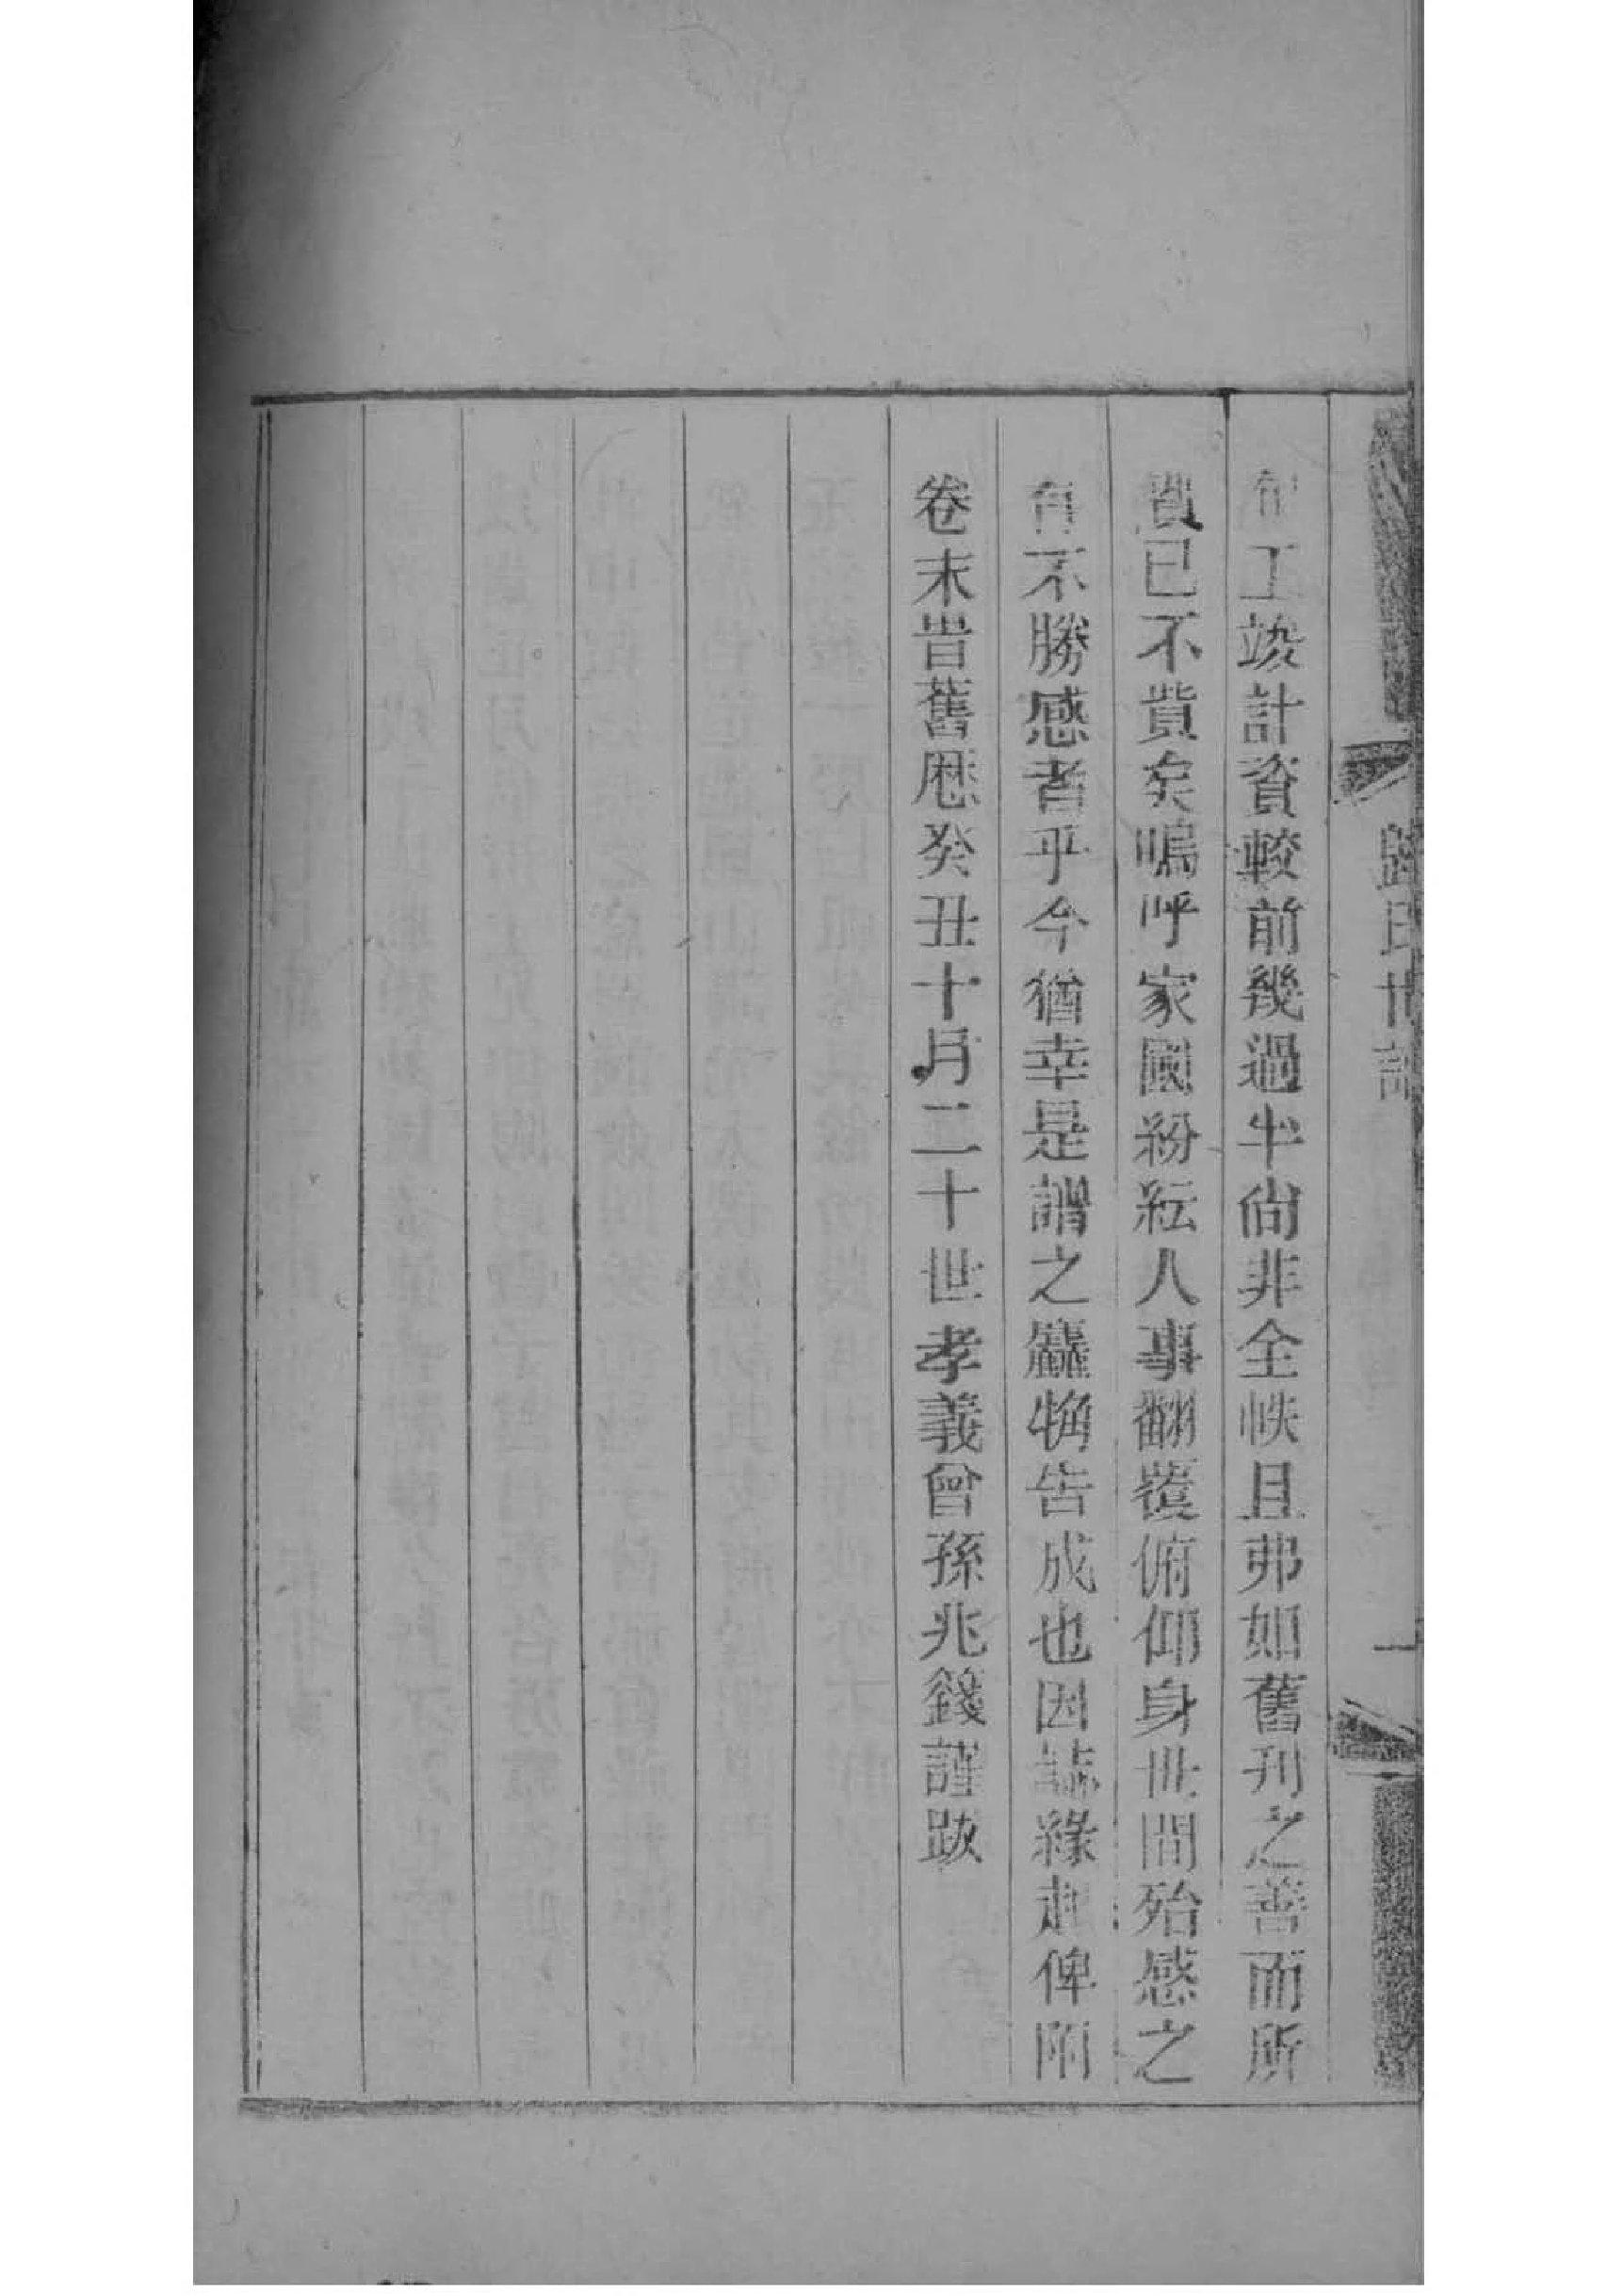 歸氏世譜
工竣計資較前幾過半尙非全帙且弗如舊刊之善而所
費已不貲矣嗚呼家國紛紜人事翻覆俯仰身世間殆感之
有不勝感者乎今猶幸是譜之麤犕告成也因誌緣起俾附
卷末旹舊厯癸丑十月二十世孝義曾孫兆籛謹跋
一